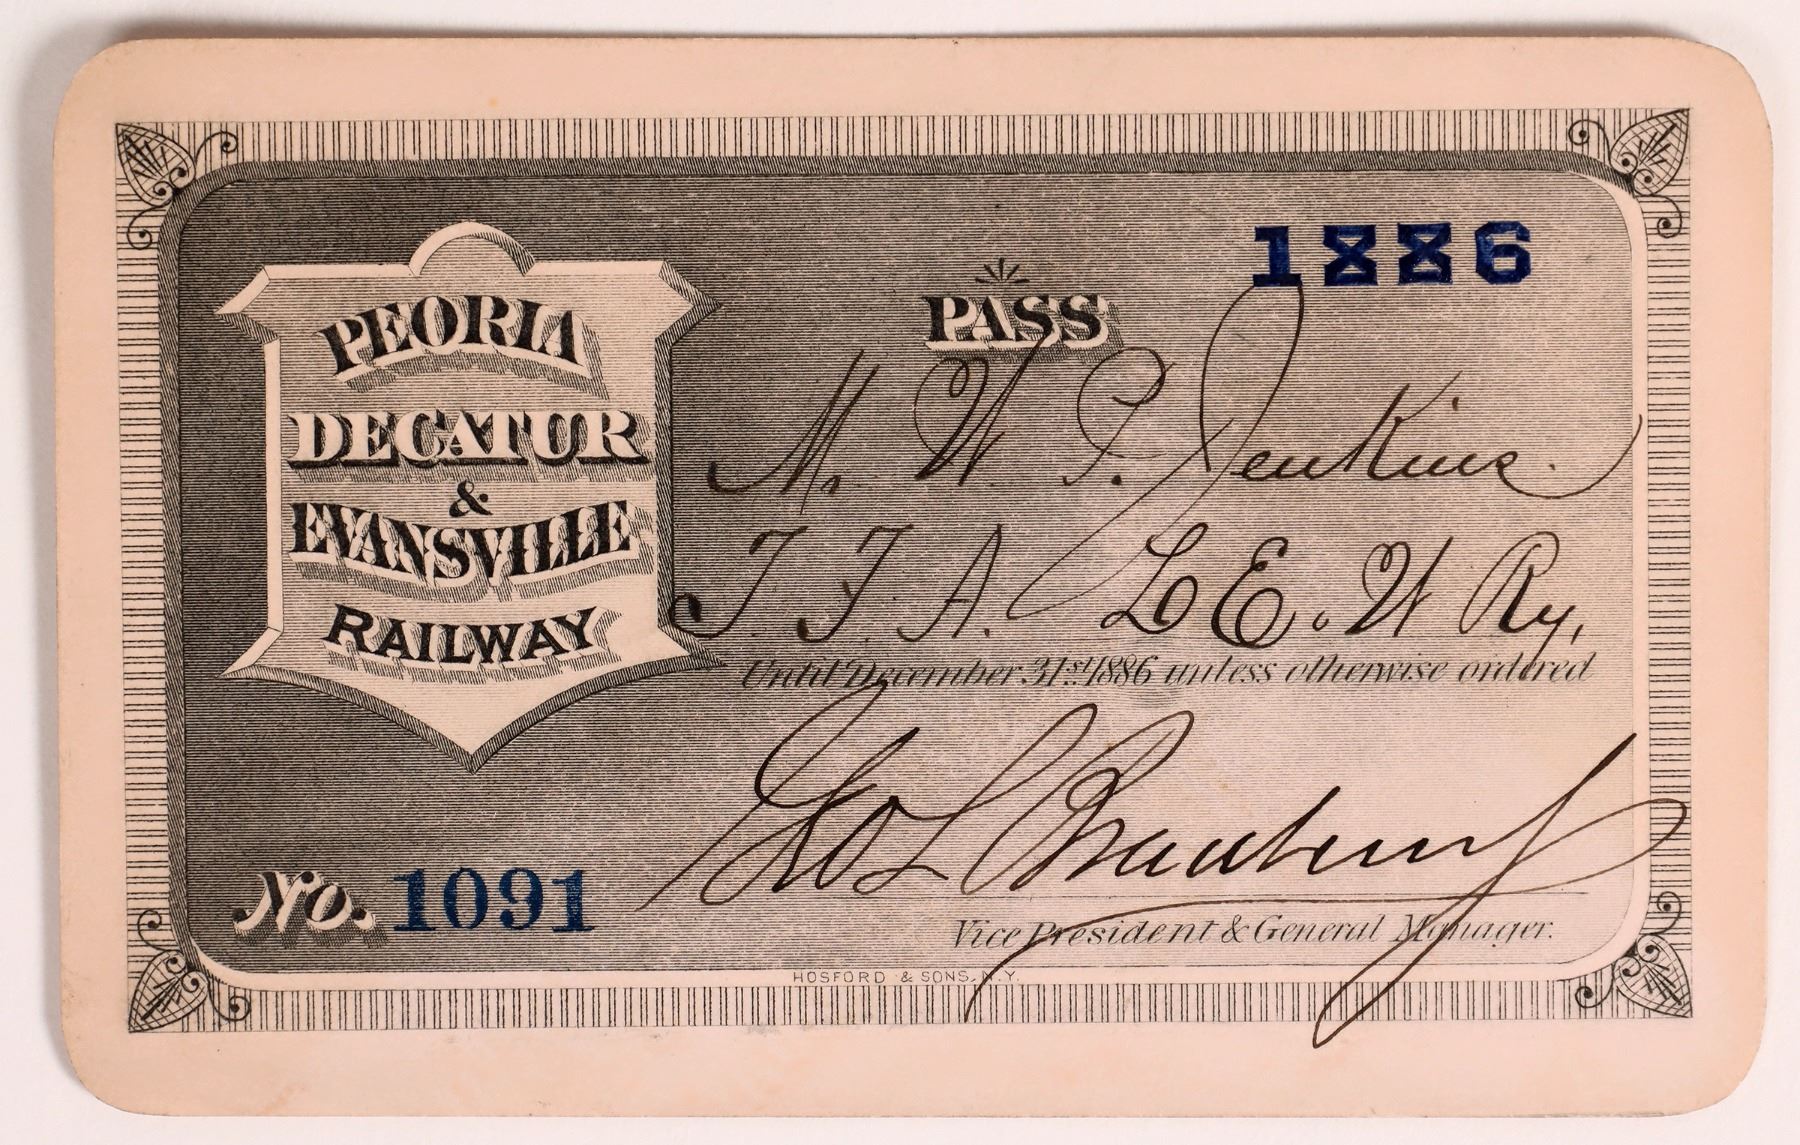 PEORIA
DECATUR
&
EVANSVILLE
RAILWAY
1886
PASS
Mr. W. P. Jenkins.
T. F. A. L E. & W Ry,
Until December 31st 1886 unless otherwise ordered
Geo L Bradbury
Vice President & General Manager.
No. 1091
HOSFORD & SONS, N.Y.